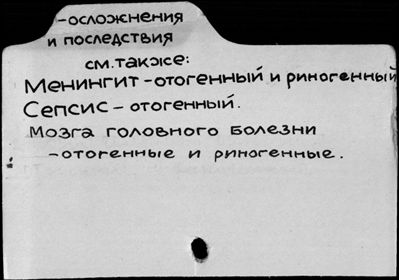 -осложнения
и последствия
см.также:
Менингит-отогенный и риногенный
Сепсис - отогенный.
Мозга головного болезни
-отогенные и риногенные.